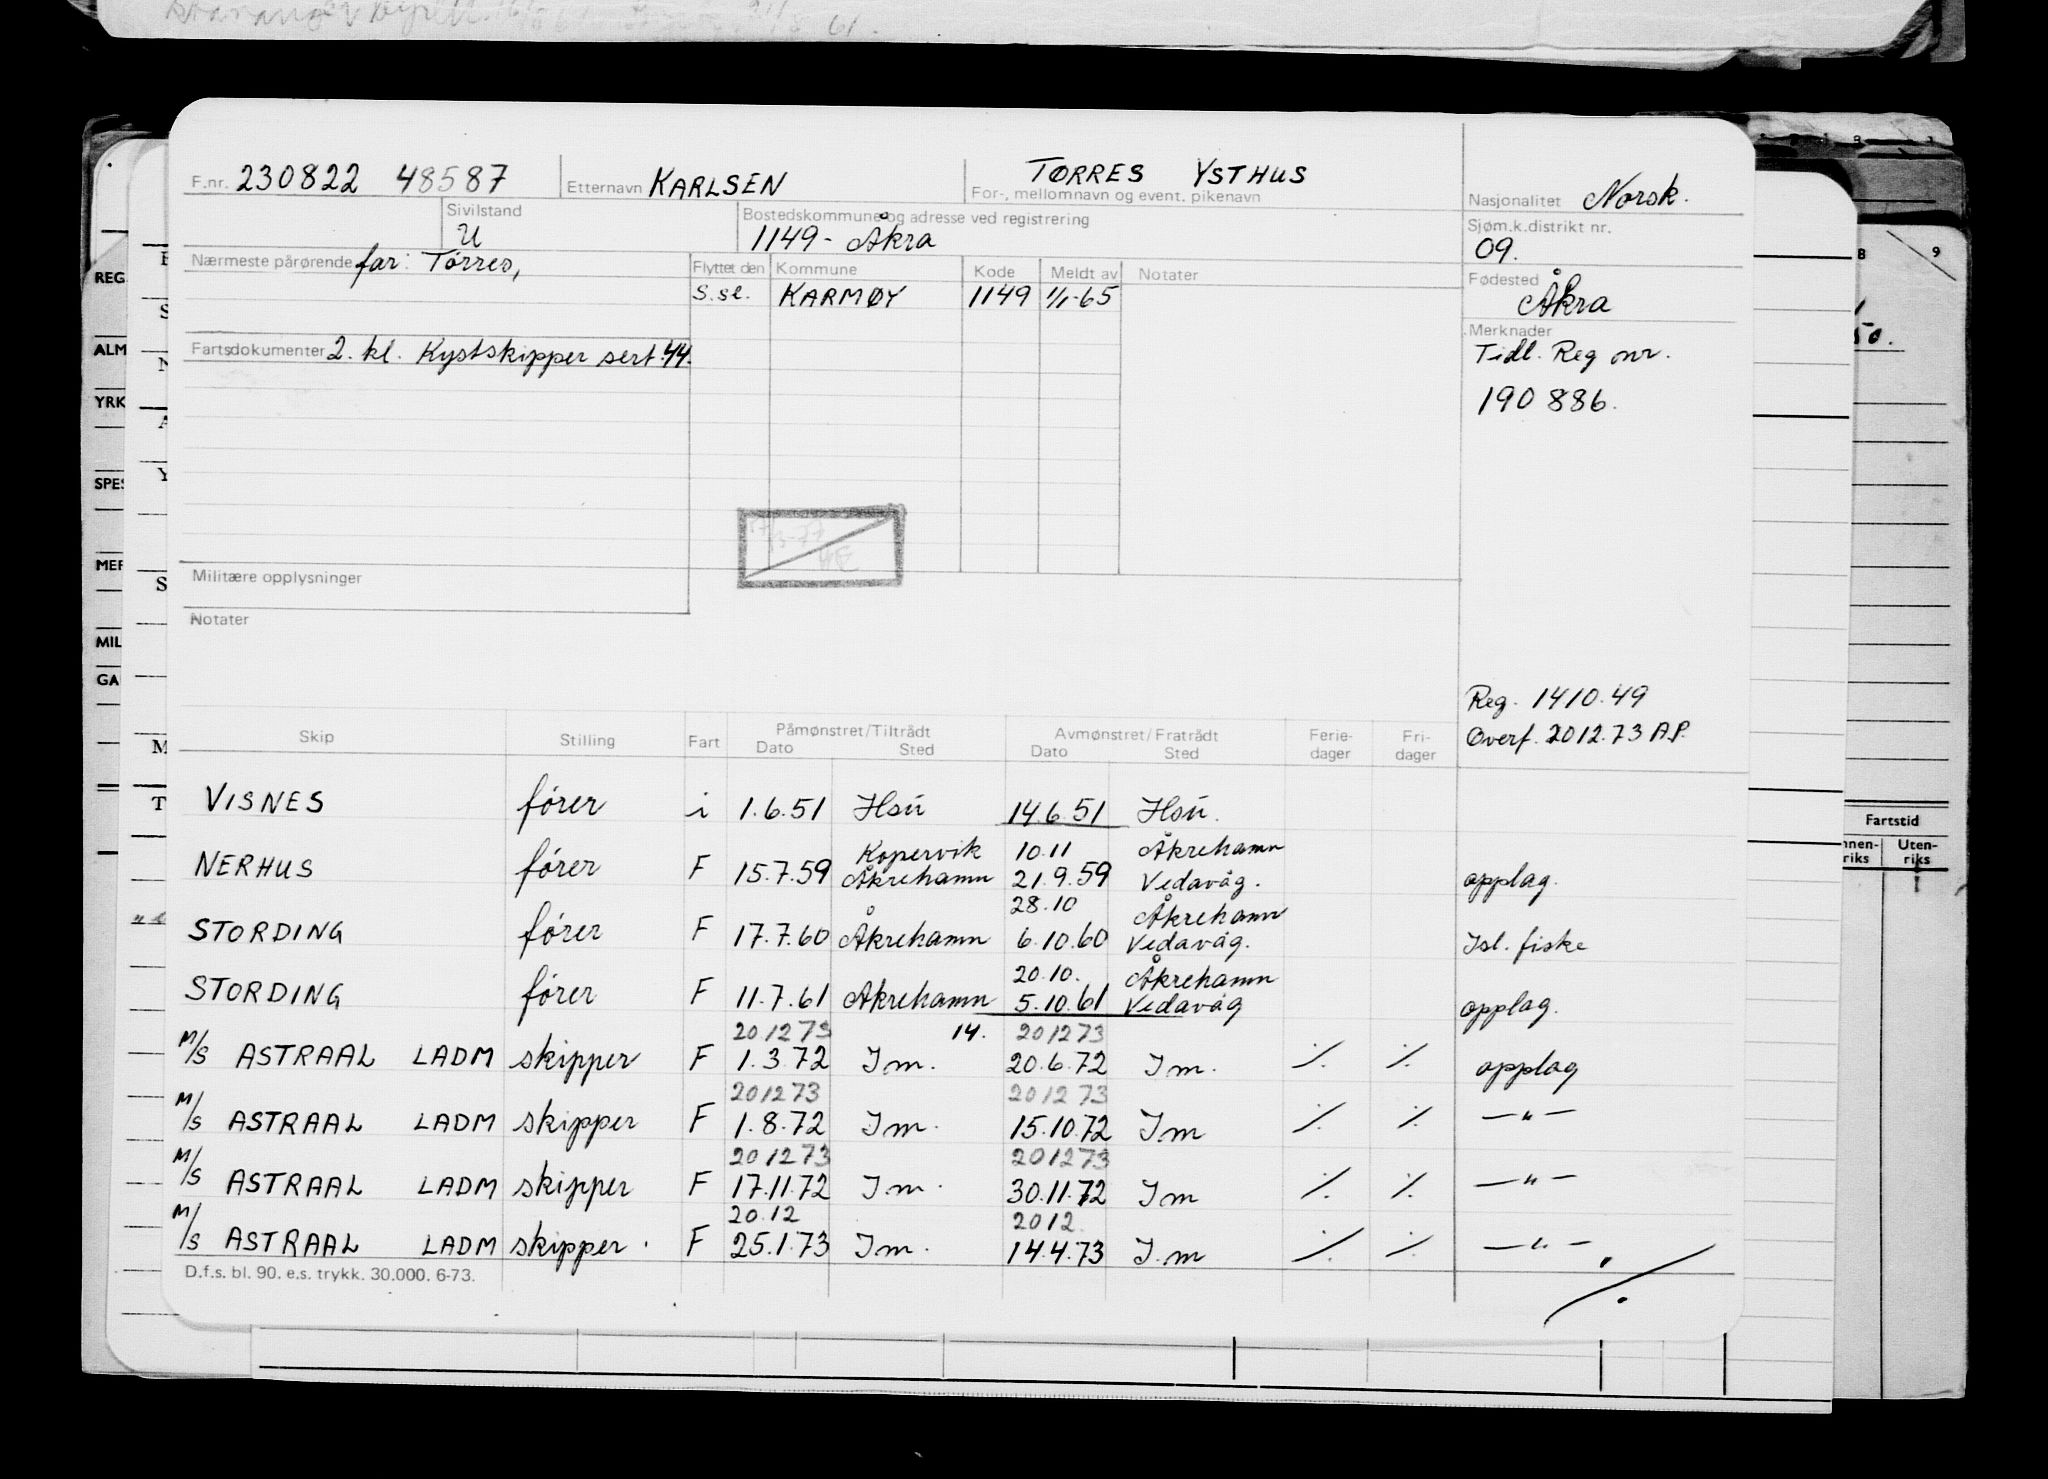 F.nr. 230822 48587 Etternavn KARLSEN TØRRES YSTHUS
For-, mellomnavn og event. pikenavn
Nasjonalitet Norsk.
Sivilstand
U
Bostedskommune og adresse ved registrering
1149 - Åkra
Sjøm.k.distrikt nr.
09.
Nærmeste pårørende far: Tørres,
Flyttet den Kommune Kode Meldt av Notater
S.sl. KARMØY 1149 1/1-65
Fødested
Åkra
Fartsdokumenter 2. kl. Kystskipper sert. 44.
Merknader
Tidl. Reg nr.
190 886.
Militære opplysninger
Notater
Reg. 1410.49
Overf. 2012.73 A.P.
Skip Stilling Fart Påmønstret/Tiltrådt Avmønstret/Fratrådt Ferie- Fri-
Dato Sted Dato Sted dager dager
VISNES fører i 1.6.51 Hsu 14.6.51 Hsu.
Kopervik 10.11 Åkrehamn
NERHUS fører F 15.7.59 Åkrehamn 21.9.59 Vedavåg. opplag.
28.10 Åkrehamn
STORDING fører F 17.7.60 Åkrehamn 6.10.60 Vedavåg. Isl. fiske
20.10. Åkrehamn
STORDING fører F 11.7.61 Åkrehamn 5.10.61 Vedavåg opplag.
201273 14. 201273
M/S ASTRAAL LADM skipper F 1.3.72 I m. 20.6.72 I m. ·/. ·/. opplag
201273 201273
M/S ASTRAAL LADM skipper F 1.8.72 I m. 15.10.72 I m ·/. ·/. — " —
201273 201273
M/S ASTRAAL LADM skipper F 17.11.72 I m. 30.11.72 I m ·/. ·/. — " —
20.12 2012.
M/S ASTRAAL LADM skipper. F 25.1.73 I m. 14.4.73 I.m ·/. ·/. — " —
·/.
D.f.s. bl. 90. e.s. trykk. 30.000. 6-73.
REG
ALM
YRK
SPES
MER
MIL
GA
8 9
50.
Fartstid
nnen-
riks
Uten-
riks